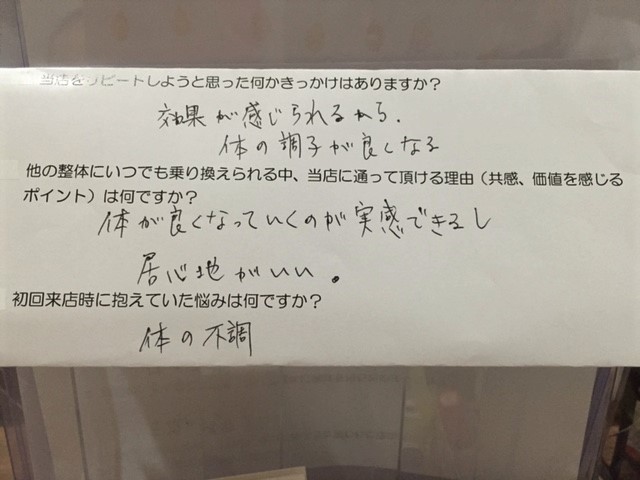 当店をリピートしようと思った何かきっかけはありますか?
効果が感じられるから.
体の調子が良くなる
他の整体にいつでも乗り換えられる中、当店に通って頂ける理由(共感、価値を感じる
ポイント)は何ですか?
体が良くなっていくのが実感できるし
居心地がいい。
初回来店時に抱えていた悩みは何ですか?
体の不調